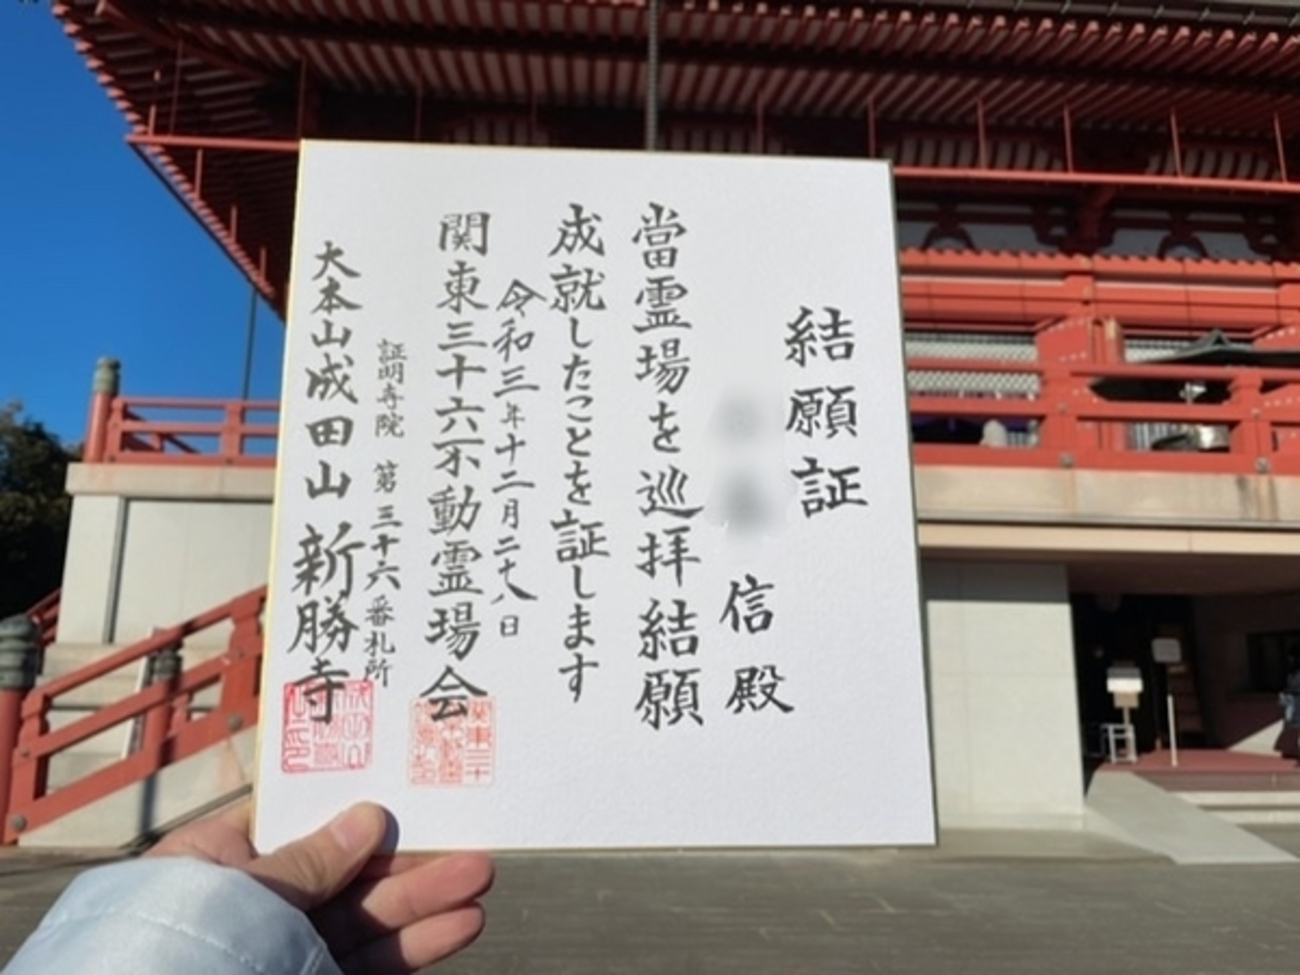 結願証
信殿
當霊場を巡拝結願
成就したことを証します
令和三年十二月二十八日
関東三十六不動霊場会
証明寺院 第三十六番札所
大本山成田山新勝寺